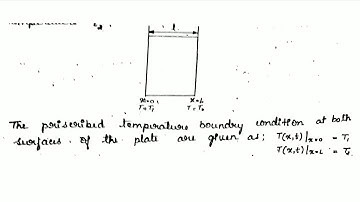 L
x=0 x=L
T=T₁ T=T₂
The priscribed temperature boundry condition at both
surfaces of the plate are given as; T(x,t)|x=0 = T₁
T(x,t)|x=L = T₂